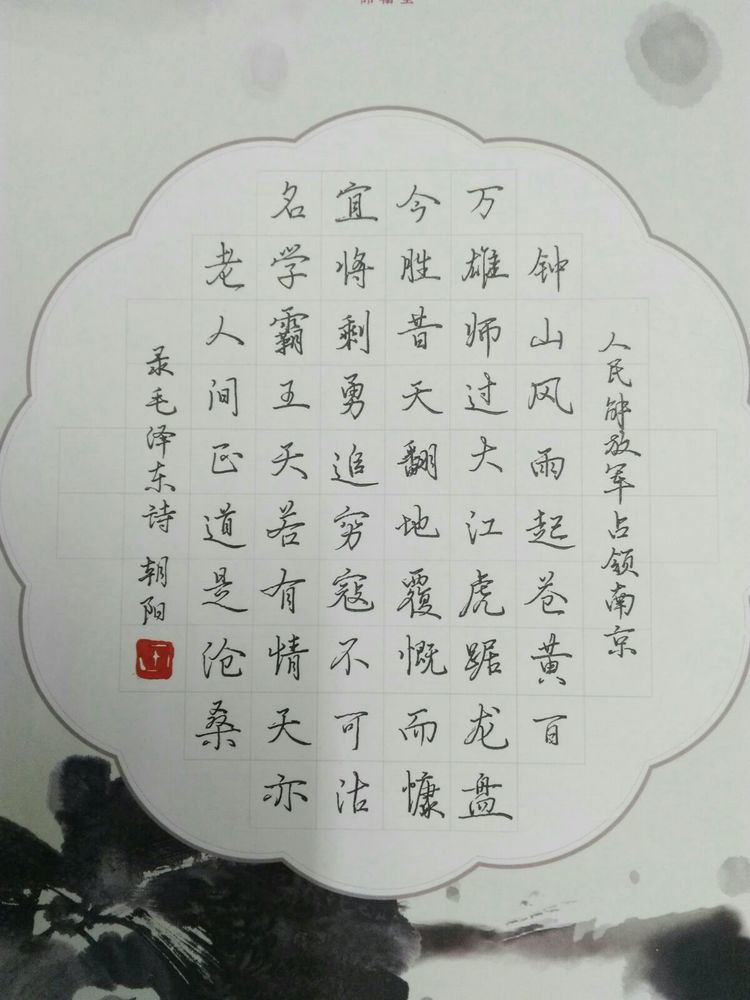 人民解放军占领南京
钟山风雨起苍黄百
万雄师过大江虎踞龙盘
今胜昔天翻地覆慨而慷
宜将剩勇追穷寇不可沽
名学霸王天若有情天亦
老人间正道是沧桑
录毛泽东诗 朝阳